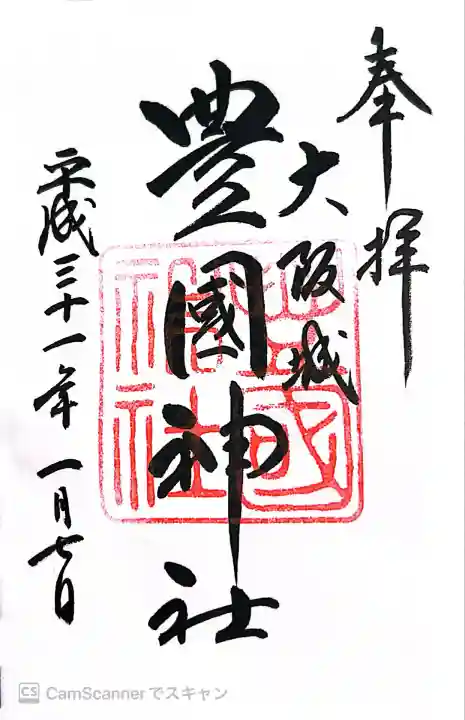 奉拝
大阪城
豊國神社
豊國神社
平成三十一年一月七日
CS CamScannerでスキャン